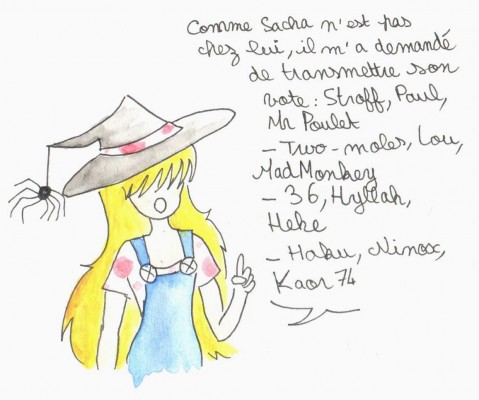 Comme Sacha n'est pas
chez lui, il m'a demandé
de transmettre son
vote : Stroff, Paul,
Mr Poulet
- Two-moles, Lou,
MadMonkey
- 36, Hyllah,
Heke
- Haku, Ninox,
Kaor 74